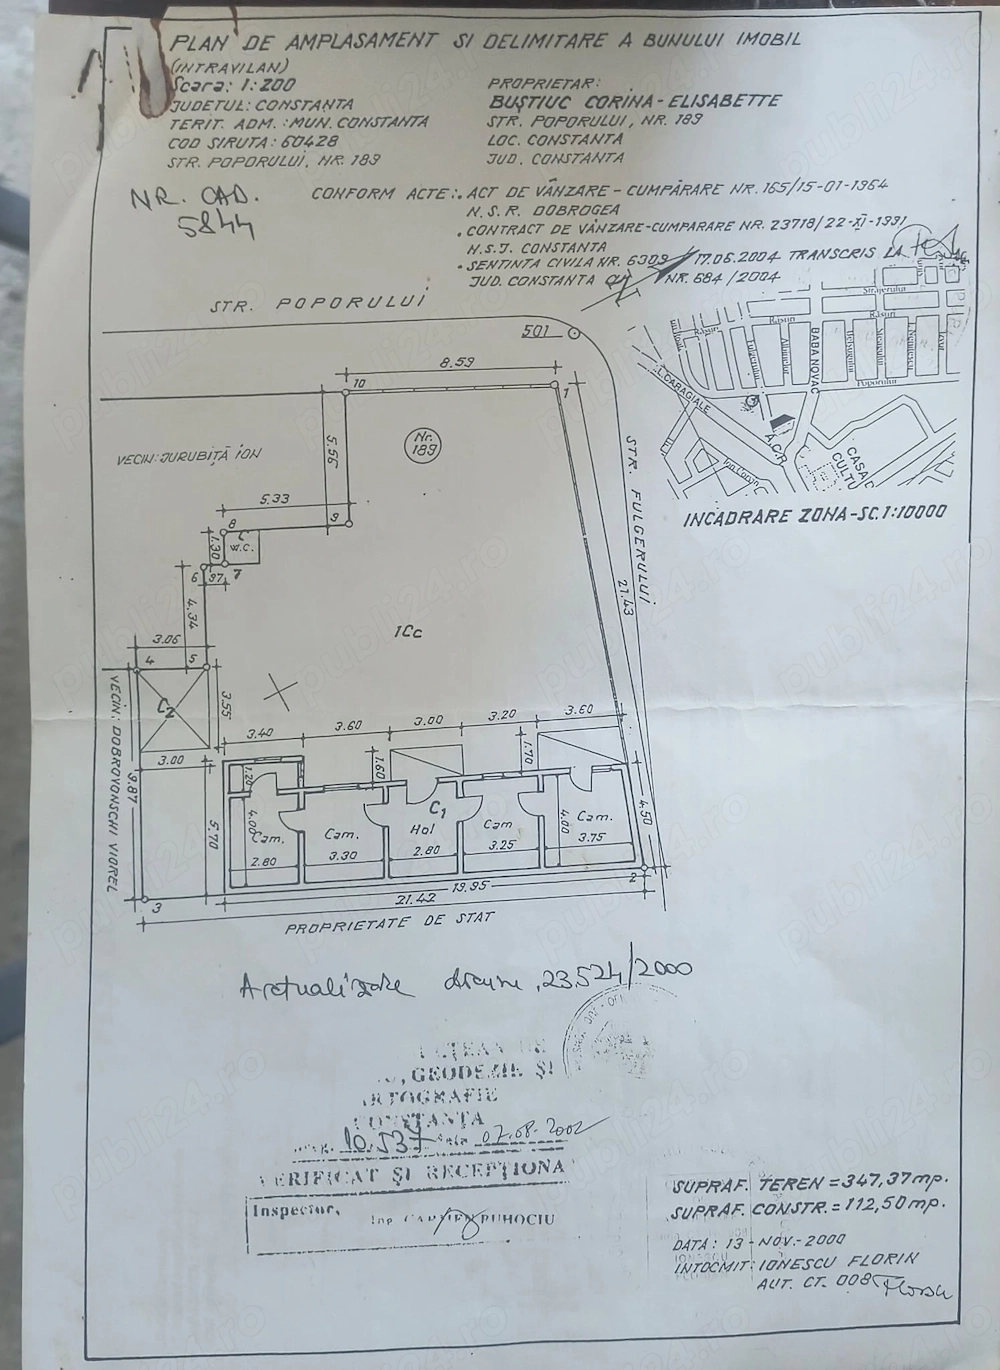 PLAN DE AMPLASAMENT SI DELIMITARE A BUNULUI IMOBIL
(INTRAVILAN)
Scara: 1:200
JUDETUL: CONSTANTA
TERIT. ADM.: MUN. CONSTANTA
COD SIRUTA: 60428
STR. POPORULUI, NR. 189
PROPRIETAR:
BUȘTIUC CORINA-ELISABETTE
STR. POPORULUI, NR. 189
LOC. CONSTANTA
JUD. CONSTANTA
NR. CAD.
5844
CONFORM ACTE: . ACT DE VÂNZARE - CUMPĂRARE NR. 165/15-01-1964
N.S.R. DOBROGEA
. CONTRACT DE VÂNZARE-CUMPARARE NR. 23718/22-XI-1991
N.S.J. CONSTANTA
. SENTINTA CIVILA NR. 6309/17.06.2004 TRANSCRIS LA
JUD. CONSTANTA NR. 684/2004
STR. POPORULUI
501
8.59
10
1
Nr.
189
5.56
VECIN: JURUBIȚĂ ION
5.33
8
9
C
W.C.
1.30
6
97
7
4.34
3.06
4
5
1Cc
STR. FULGERULUI
21.43
C2
3.55
3.00
VECIN: DOBROVONSCHI VIOREL
9.87
3.40
3.60
3.00
3.20
3.60
1.60
1.70
1.20
4.00
Cam.
2.80
Cam.
3.30
C1
Hol
2.80
Cam
3.25
4.00
Cam.
3.75
4.50
5.70
2
3
19.95
21.42
PROPRIETATE DE STAT
Strajerului
Rasuri
Rasuri
Fulgerului
Albinelor
BABA NOVAC
Poporului
I.L. CARAGIALE
A.C.R.
CASA DE
CULTU
INCADRARE ZONA-SC.1:10000
Actualizare 23.524/2000
, GEODEZIE ȘI
RTOGRAFIE
CONSTANȚA
10.537 Data 07.08.2002
VERIFICAT ȘI RECEPȚIONA
Inspector,
Ing. CARMEN PUHOCIU
SUPRAF. TEREN = 347,37 mp.
SUPRAF. CONSTR. = 112,50 mp.
DATA: 13-NOV.-2000
INTOCMIT: IONESCU FLORIN
AUT. CT. 008
publi24.ro